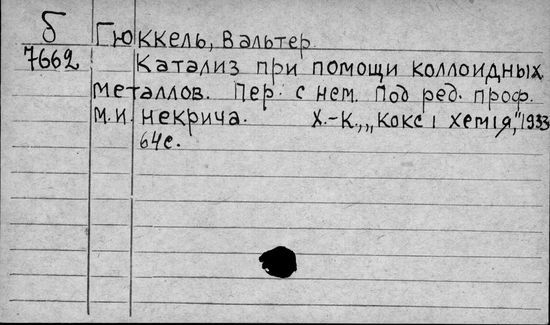 б Гюккель, Вальтер
7662 Катализ при помощи коллоидных
металлов. Пер. с нем. Под ред. проф.
М.И. Некрича. Х.-К., „Кокс і хемія", 1933
64с.